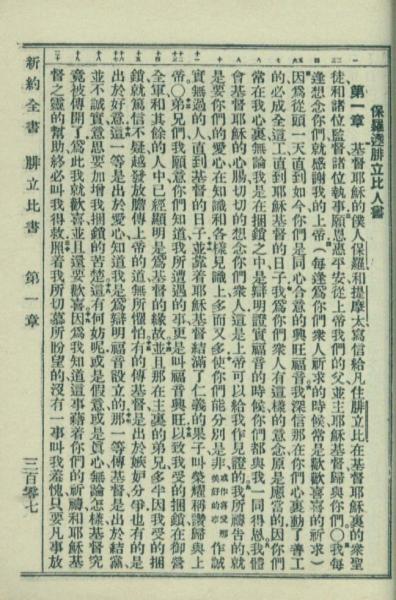 保羅達腓立比人書
第一章 基督耶穌的僕人保羅和提摩太寫信給凡住腓立比在基督耶穌裏的衆聖
徒和諸位監督諸位執事願恩惠平安從上帝我們的父並主耶穌基督歸與你們〇我每
逢想念你們就感謝我的上帝(每逢爲你們衆人祈求的時候常是歡歡喜喜的祈求)
因爲從頭一天直到如今你們是同心合意的興旺福音我深信那在你們心裏動了善工
的必成全這工直到耶穌基督的日子我爲你們衆人有這樣的意念原是應當的因你們
常在我心裏無論我是在捆鎖之中是辯明證實福音的時候你們都與我一同得恩我體
會基督耶穌的心腸切切的想念你們衆人這是上帝可以給我作見證的我所禱告的就
是要你們的愛心在知識和各樣見識上多而又多使你們能分別是非作誠
實無過的人直到基督的日子並靠着耶穌基督結滿了仁義的果子叫榮耀稱讚歸與上
帝〇弟兄們我願意你們知道我所遭遇的事更是叫福音興旺以致我受的捆鎖在御營
全軍和其餘的人中已經顯明是爲基督的緣故並且那在主裏的弟兄多半因我受的捆
鎖就篤信不疑越發放膽傳上帝的道無所懼怕有的傳基督是出於嫉妒分爭也有的是
出於好意這一等是出於愛心知道我是爲辯明福音設立的那一等傳基督是出於結黨
並不誠實意思要加增我捆鎖的苦楚這有何妨呢或是假意或是眞心無論怎樣基督究
竟被傳開了爲此我就歡喜並且還要歡喜因爲我知道這事藉着你們的祈禱和耶穌基
督之靈的幫助終必叫我得救照着我所切慕所盼望的沒有一事叫我羞愧只要凡事放
新約全書 腓立比書 第一章 三百零七